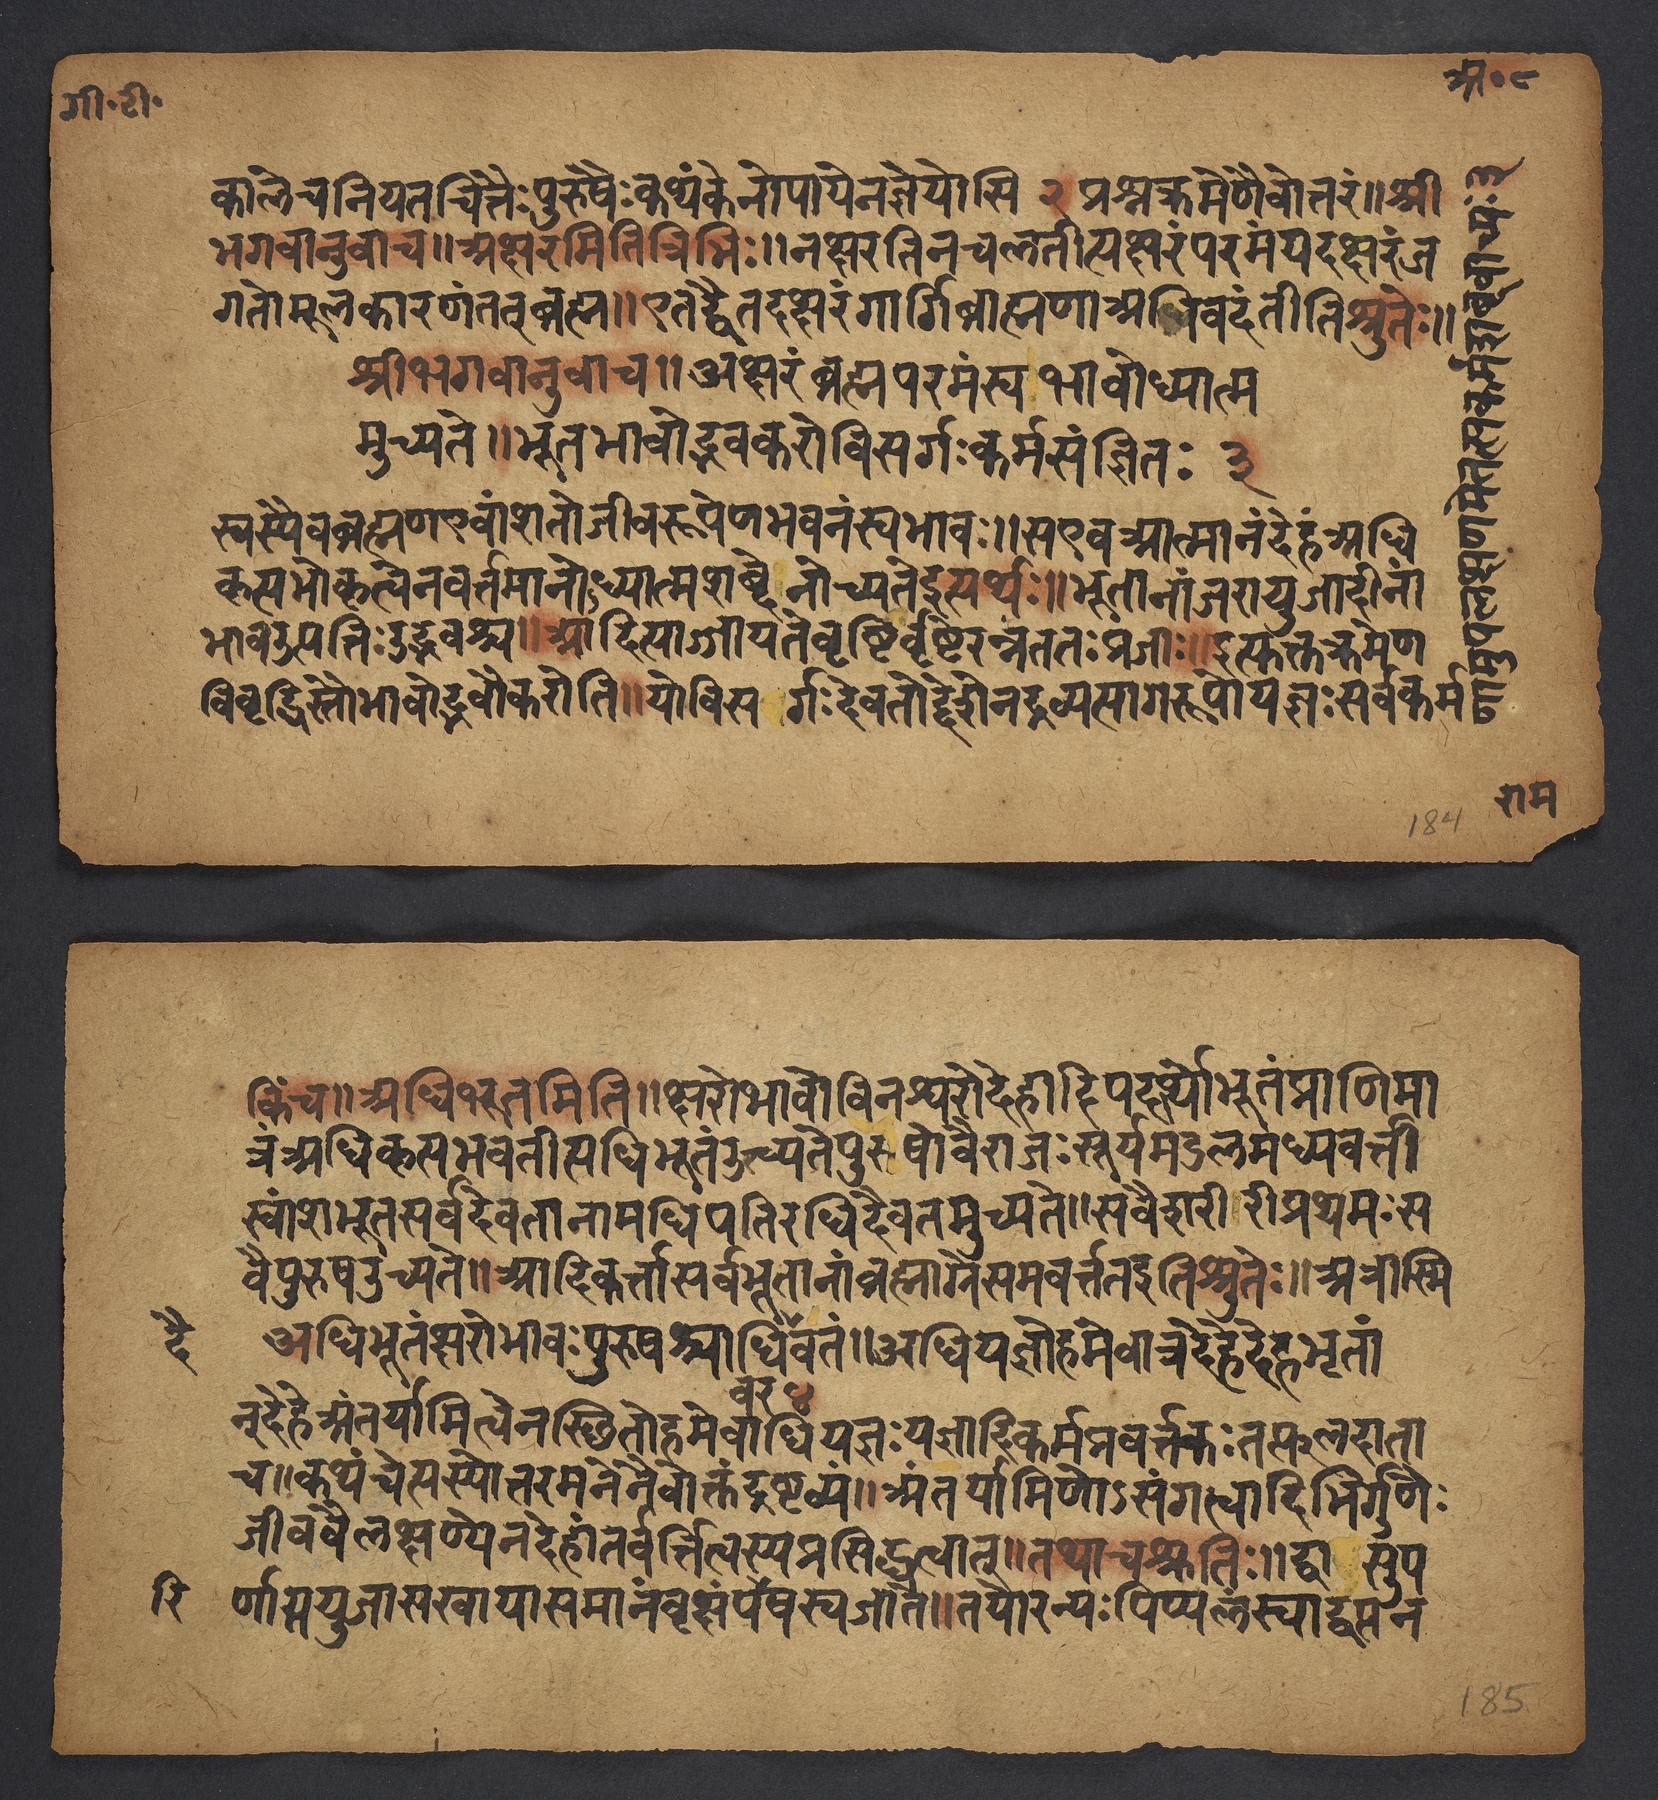 गी॰टी॰
अ॰८
कालेचनियतचित्तैःपुरुषैःकथंकेनोपायेनज्ञेयोसि २ प्रश्नक्रमेणैवोत्तरं॥श्री
भगवानुवाच॥अक्षरमितित्रिभिः॥नक्षरतिनचलतीत्यक्षरंपरमंयदक्षरंज
गतोमूलकारणंतत्ब्रह्म॥एतद्वैतदक्षरंगार्गिब्राह्मणाअभिवदंतीतिश्रुतेः॥
श्रीभगवानुवाच॥अक्षरं ब्रह्मपरमंस्वभावोध्यात्म
मुच्यते॥भूतभावोद्भवकरोविसर्गःकर्मसंज्ञितः ३
स्वस्यैवब्रह्मणएवांशतोजीवरूपेणभवनंस्वभावः॥सएवआत्मानंदेहंअधि
कृत्यभोक्तृत्वेनवर्तमानोऽध्यात्मशब्देनोच्यतेइत्यर्थः॥भूतानांजरायुजादीनां
भावउत्पत्तिःउद्भवश्च॥आदित्याज्जायतेवृष्टिर्वृष्टेरन्नंततःप्रजाः॥इत्युक्तक्रमेण
विवृद्धिस्तौभावोद्भवौकरोति॥योविसर्गःदेवतोद्देशेनद्रव्यत्यागरूपोयज्ञःसर्वकर्म
णामुपलक्षणमेतत्सकर्मशब्दवाच्यं३
राम
184
किंच॥अधिभूतमिति॥क्षरोभावोविनश्वरोदेहादिपदार्थोभूतंप्राणिमा
त्रंअधिकृत्यभवतीत्यधिभूतंउच्यतेपुरुषोवैराजःसूर्यमंडलमध्यवर्त्ती
स्वांशभूतसर्वदेवतानामधिपतिरधिदैवतमुच्यते॥सवैशरीरीप्रथमःस
वैपुरुषउच्यते॥आदिकर्त्तासर्वभूतानांब्रह्माग्रेसमवर्त्ततइतिश्रुतेः॥अत्रास्मि
दै
अधिभूतंक्षरोभावःपुरुषश्चाधिवतं॥अधियज्ञोहमेवात्रदेहेदेहभृतां
वर ४
न्देहेअंतर्यामित्वेनस्थितोहमेवाधियज्ञःयज्ञादिकर्मप्रवर्त्तकःतत्फलदाता
च॥कथंचेत्यस्योत्तरमनेनैवोक्तंद्रष्टव्यं॥अंतर्यामिणोऽसंगत्वादिभिर्गुणैः
जीववैलक्षण्येनदेहांतर्वर्त्तित्वस्यप्रसिद्धत्वात्॥तथाचश्रुतिः॥द्वा सुप
रि
र्णासयुजासखायासमानंवृक्षंपषस्वजाते॥तयोरन्यःपिप्पलंस्वाद्वत्त्यन
185